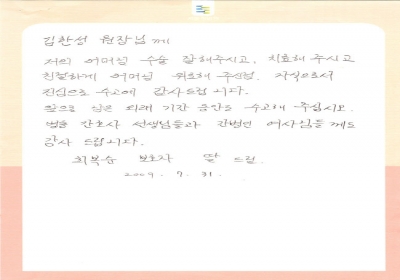 김찬성 원장님께
저의 어머님 수술 잘해주시고, 치료해 주시고
친절하게 어머님 위로해 주신점. 자식으로서
진심으로 수고에 감사드립니다.
앞으로 남은 외래 기간 동안도 수고해 주십시요.
병동 간호사 선생님들과 간병인 여사님들께도
감사 드립니다.
최복순 보호자 딸 드림.
2009. 7. 31.